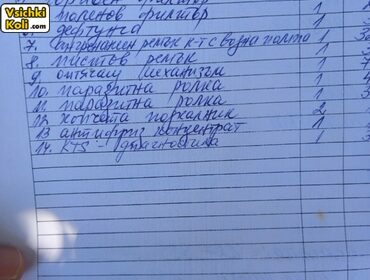 Vsichki
Koli.com
горивен филтър
поленов филтър 1
6. дефтунга 1
7. Ангренажен ремък к-т с водна помпа 1
8. пистов ремък 1
9. опъващ механизъм 1
10. паразитна ролка 1
11. паразитна ролка 1
12. копчета подкалник 2
13 антифриз концентрат 1
14. KTS - диагностика 1